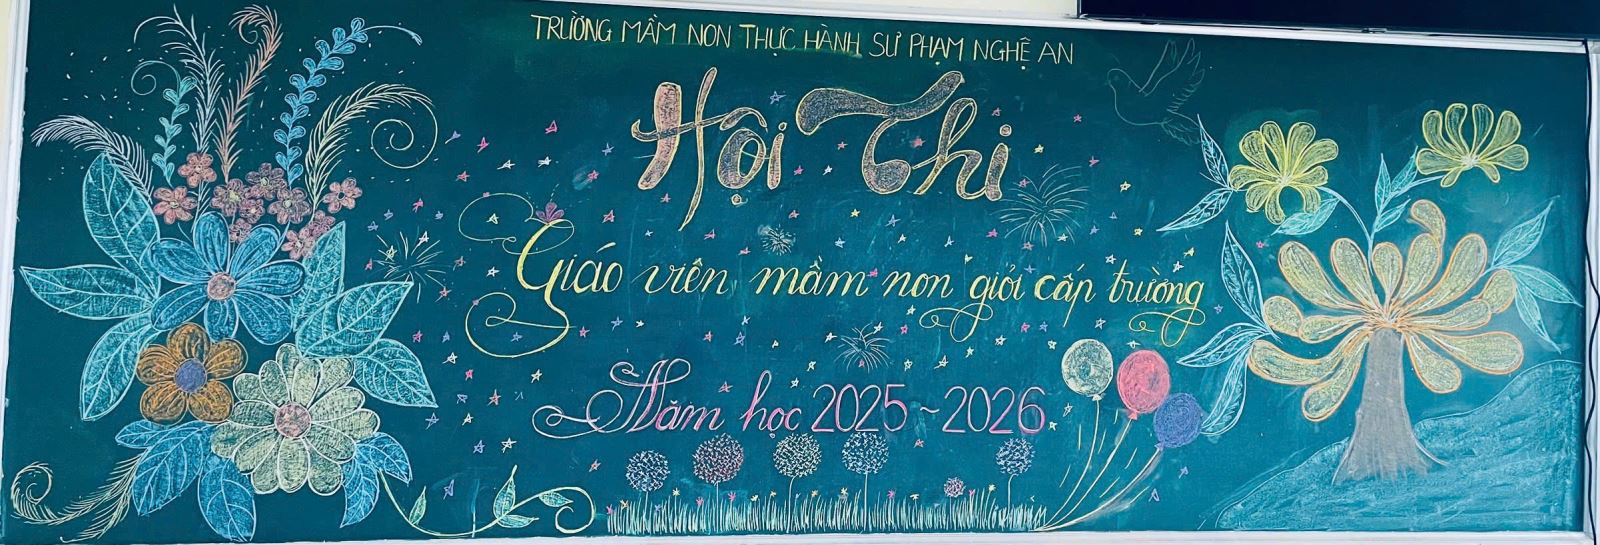 TRƯỜNG MẦM NON THỰC HÀNH SƯ PHẠM NGHỆ AN
Hội Thi
Giáo viên mầm non giỏi cấp trường
Năm học 2025 ~ 2026